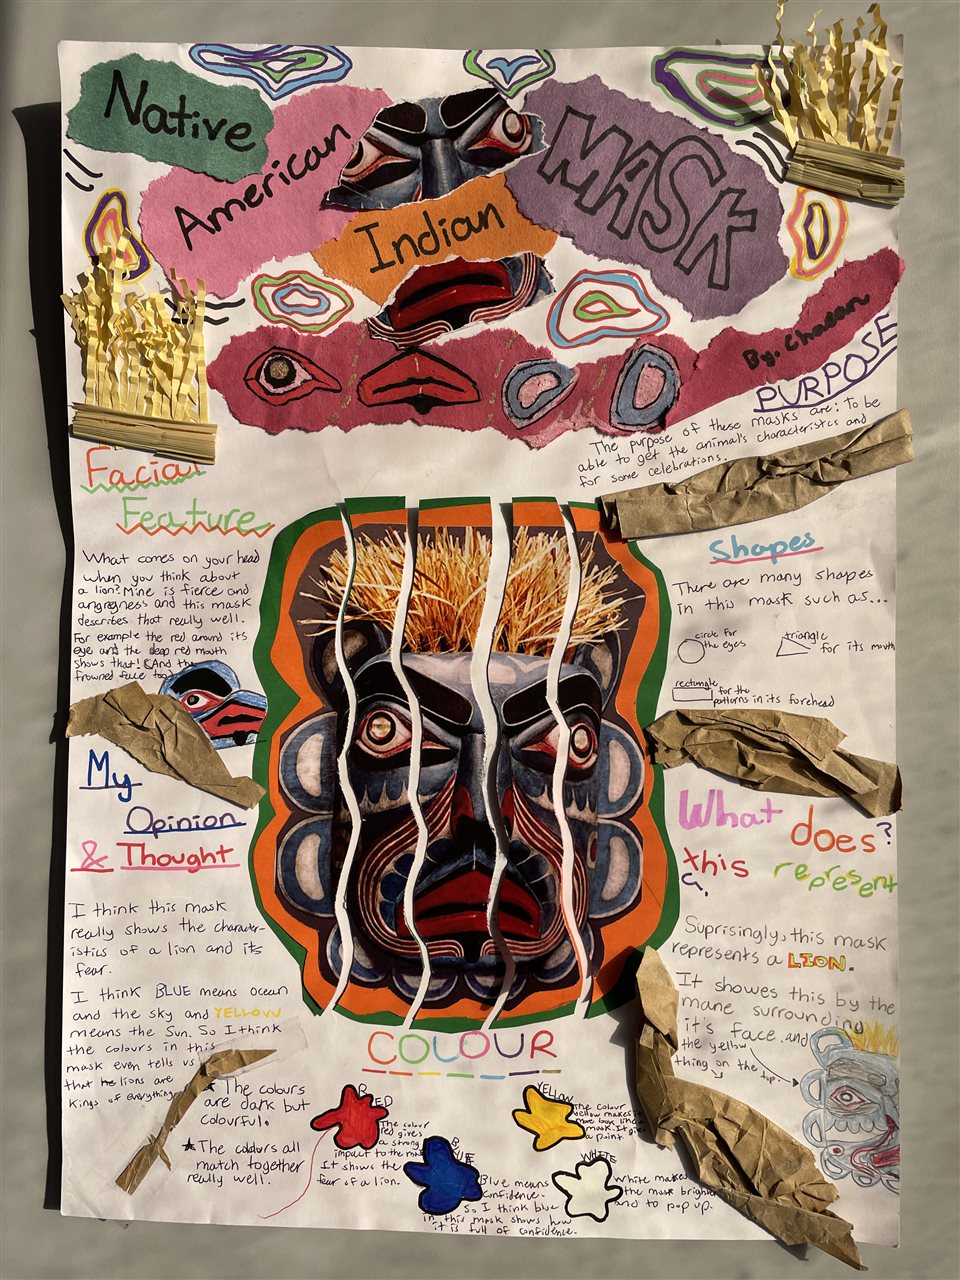 Native
American
Indian
MASK
By. Chaeon
PURPOSE
The purpose of these masks are: To be
able to get the animal's characteristics and
for some celebrations.
Facial
Feature
What comes on your head
when you think about
a lion? Mine is fierce and
angryness and this mask
describes that really well.
For example the red around its
eye and the deep red mouth
shows that! (And the
frowned face too)
Shapes
There are many shapes
in this mask such as...
circle for
the eyes
triangle
for its mouth
rectangle
for the
patterns in its forehead
My
Opinion
& Thought
I think this mask
really shows the character-
istics of a lion and its
fear.
I think BLUE means ocean
and the sky and YELLOW
means the Sun. So I think
the colours in this
mask even tells us
that lions are
kings of everything
What does?
this
represent
Suprisingly, this mask
represents a LION.
It showes this by the
mane surrounding
it's face and
the yellow
thing on the top.
COLOUR
★ The colours
are dark but
colourful.
★ The colours all
match together
really well.
RED
The colour
red gives
a strong
impact to the mask
It shows the
fear of a lion.
BLUE
Blue means
confidence.
So I think blue
in this mask shows how
it is full of confidence.
YELLOW
The colour
yellow makes
mask. It gives
a point.
WHITE
White makes
the mask bright
and to pop up.